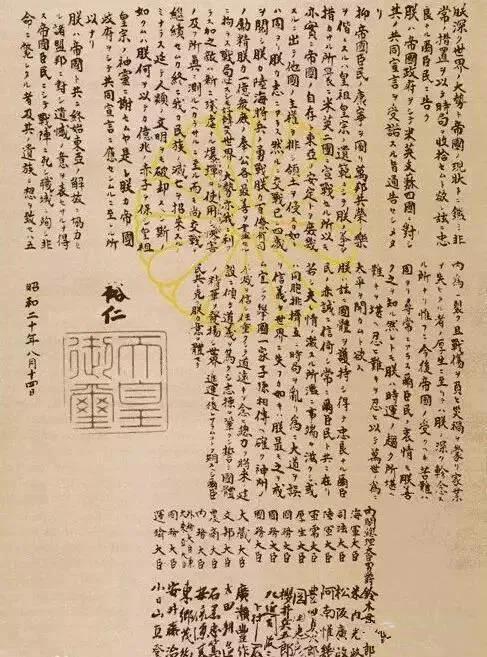 朕深ク世界ノ大勢ト帝國ノ現狀トニ鑑ミ非
常ノ措置ヲ以テ時局ヲ收拾セムト欲シ茲ニ忠
良ナル爾臣民ニ告ク
朕ハ帝國政府ヲシテ米英支蘇四國ニ對シ
其ノ共同宣言ヲ受諾スル旨通告セシメタリ
抑帝國臣民ノ康寧ヲ圖リ萬邦共榮ノ樂
ヲ偕ニスルハ皇祖皇宗ノ遺範ニシテ朕ノ拳々
措カサル所曩ニ米英二國ニ宣戰セル所以モ
亦實ニ帝國ノ自存ト東亞ノ安定トヲ庶幾
スルニ出テ他國ノ主權ヲ排シ領土ヲ侵スカ如キ
ハ固ヨリ朕カ志ニアラス然ルニ交戰已ニ四歳
ヲ閲シ朕カ陸海將兵ノ勇戰朕カ百僚有司
ノ勵精朕カ一億衆庶ノ奉公各最善ヲ盡セル
ニ拘ラス戰局必スシモ好轉セス世界ノ大勢亦我ニ利
アラス加之敵ハ新ニ殘虐ナル爆彈ヲ使用シテ 慘害ノ
及フ所眞ニ測ルヘカラサルニ至ル而モ尚交戰ヲ
繼續セムカ終ニ我カ民族ノ滅亡ヲ招來スル
ノミナラス延テ人類ノ文明ヲモ破却スヘシ斯
ノ如クムハ朕何ヲ以テカ億兆ノ赤子ヲ保シ皇祖
皇宗ノ神靈ニ謝セムヤ是レ朕カ帝國
政府ヲシテ共同宣言ニ應セシムルニ至レル所
以ナリ
朕ハ帝國ト共ニ終始東亞ノ解放ニ協力セ
ル諸盟邦ニ對シ遺憾ノ意ヲ表セサルヲ得
ス帝國臣民ニシテ戰陣ニ死シ職域ニ殉シ非
命ニ斃レタル者及其ノ遺族ニ想ヲ致セハ五
内爲ニ裂ク且戰傷ヲ負ヒ災禍ヲ蒙リ家業
ヲ失ヒタル者ノ厚生ニ至リテハ朕ノ深ク軫念ス
ル所ナリ惟フニ今後帝國ノ受クヘキ苦難ハ
固ヨリ尋常ニアラス爾臣民ノ衷情モ朕善ク
之ヲ知ル然レトモ朕ハ時運ノ趨ク所堪ヘ
難キヲ堪ヘ忍ヒ難キヲ忍ヒ以テ萬世ノ爲ニ
太平ヲ開カムト欲ス
朕ハ茲ニ國體ヲ護持シ得テ忠良ナル爾臣
民ノ赤誠ニ信倚シ常ニ爾臣民ト共ニ在リ
若シ夫レ情ノ激スル所濫ニ事端ヲ滋クシ或
ハ同胞排擠互ニ時局ヲ亂リ爲ニ大道ヲ誤
リ信義ヲ世界ニ失フカ如キハ朕最モ之ヲ戒
ム宜シク擧國一家子孫相傳ヘ確ク神州ノ
不滅ヲ信シ任重クシテ道遠キヲ念ヒ總力ヲ將來ノ建
設ニ傾ケ道義ヲ篤クシ志操ヲ鞏クシ誓テ國體
ノ精華ヲ發揚シ世界ノ進運ニ後レサラムコトヲ期スヘシ爾臣
民其レ克ク朕カ意ヲ體セヨ
裕仁
天皇御璽
昭和二十年八月十四日
内閣總理大臣男爵 鈴木貫太郎
海軍大臣 米内光政
司法大臣 松阪廣政
陸軍大臣 阿南惟幾
軍需大臣 豐田貞次郎
厚生大臣 岡田忠彦
國務大臣 櫻井兵五郎
國務大臣
國務大臣 下村宏
大藏大臣 廣瀬豐作
文部大臣 太田耕造
農商大臣 石黒忠篤
内務大臣 安倍源基
外務大臣兼大東亞大臣 東郷茂徳
國務大臣 安井藤治
運輸大臣 小日山直登